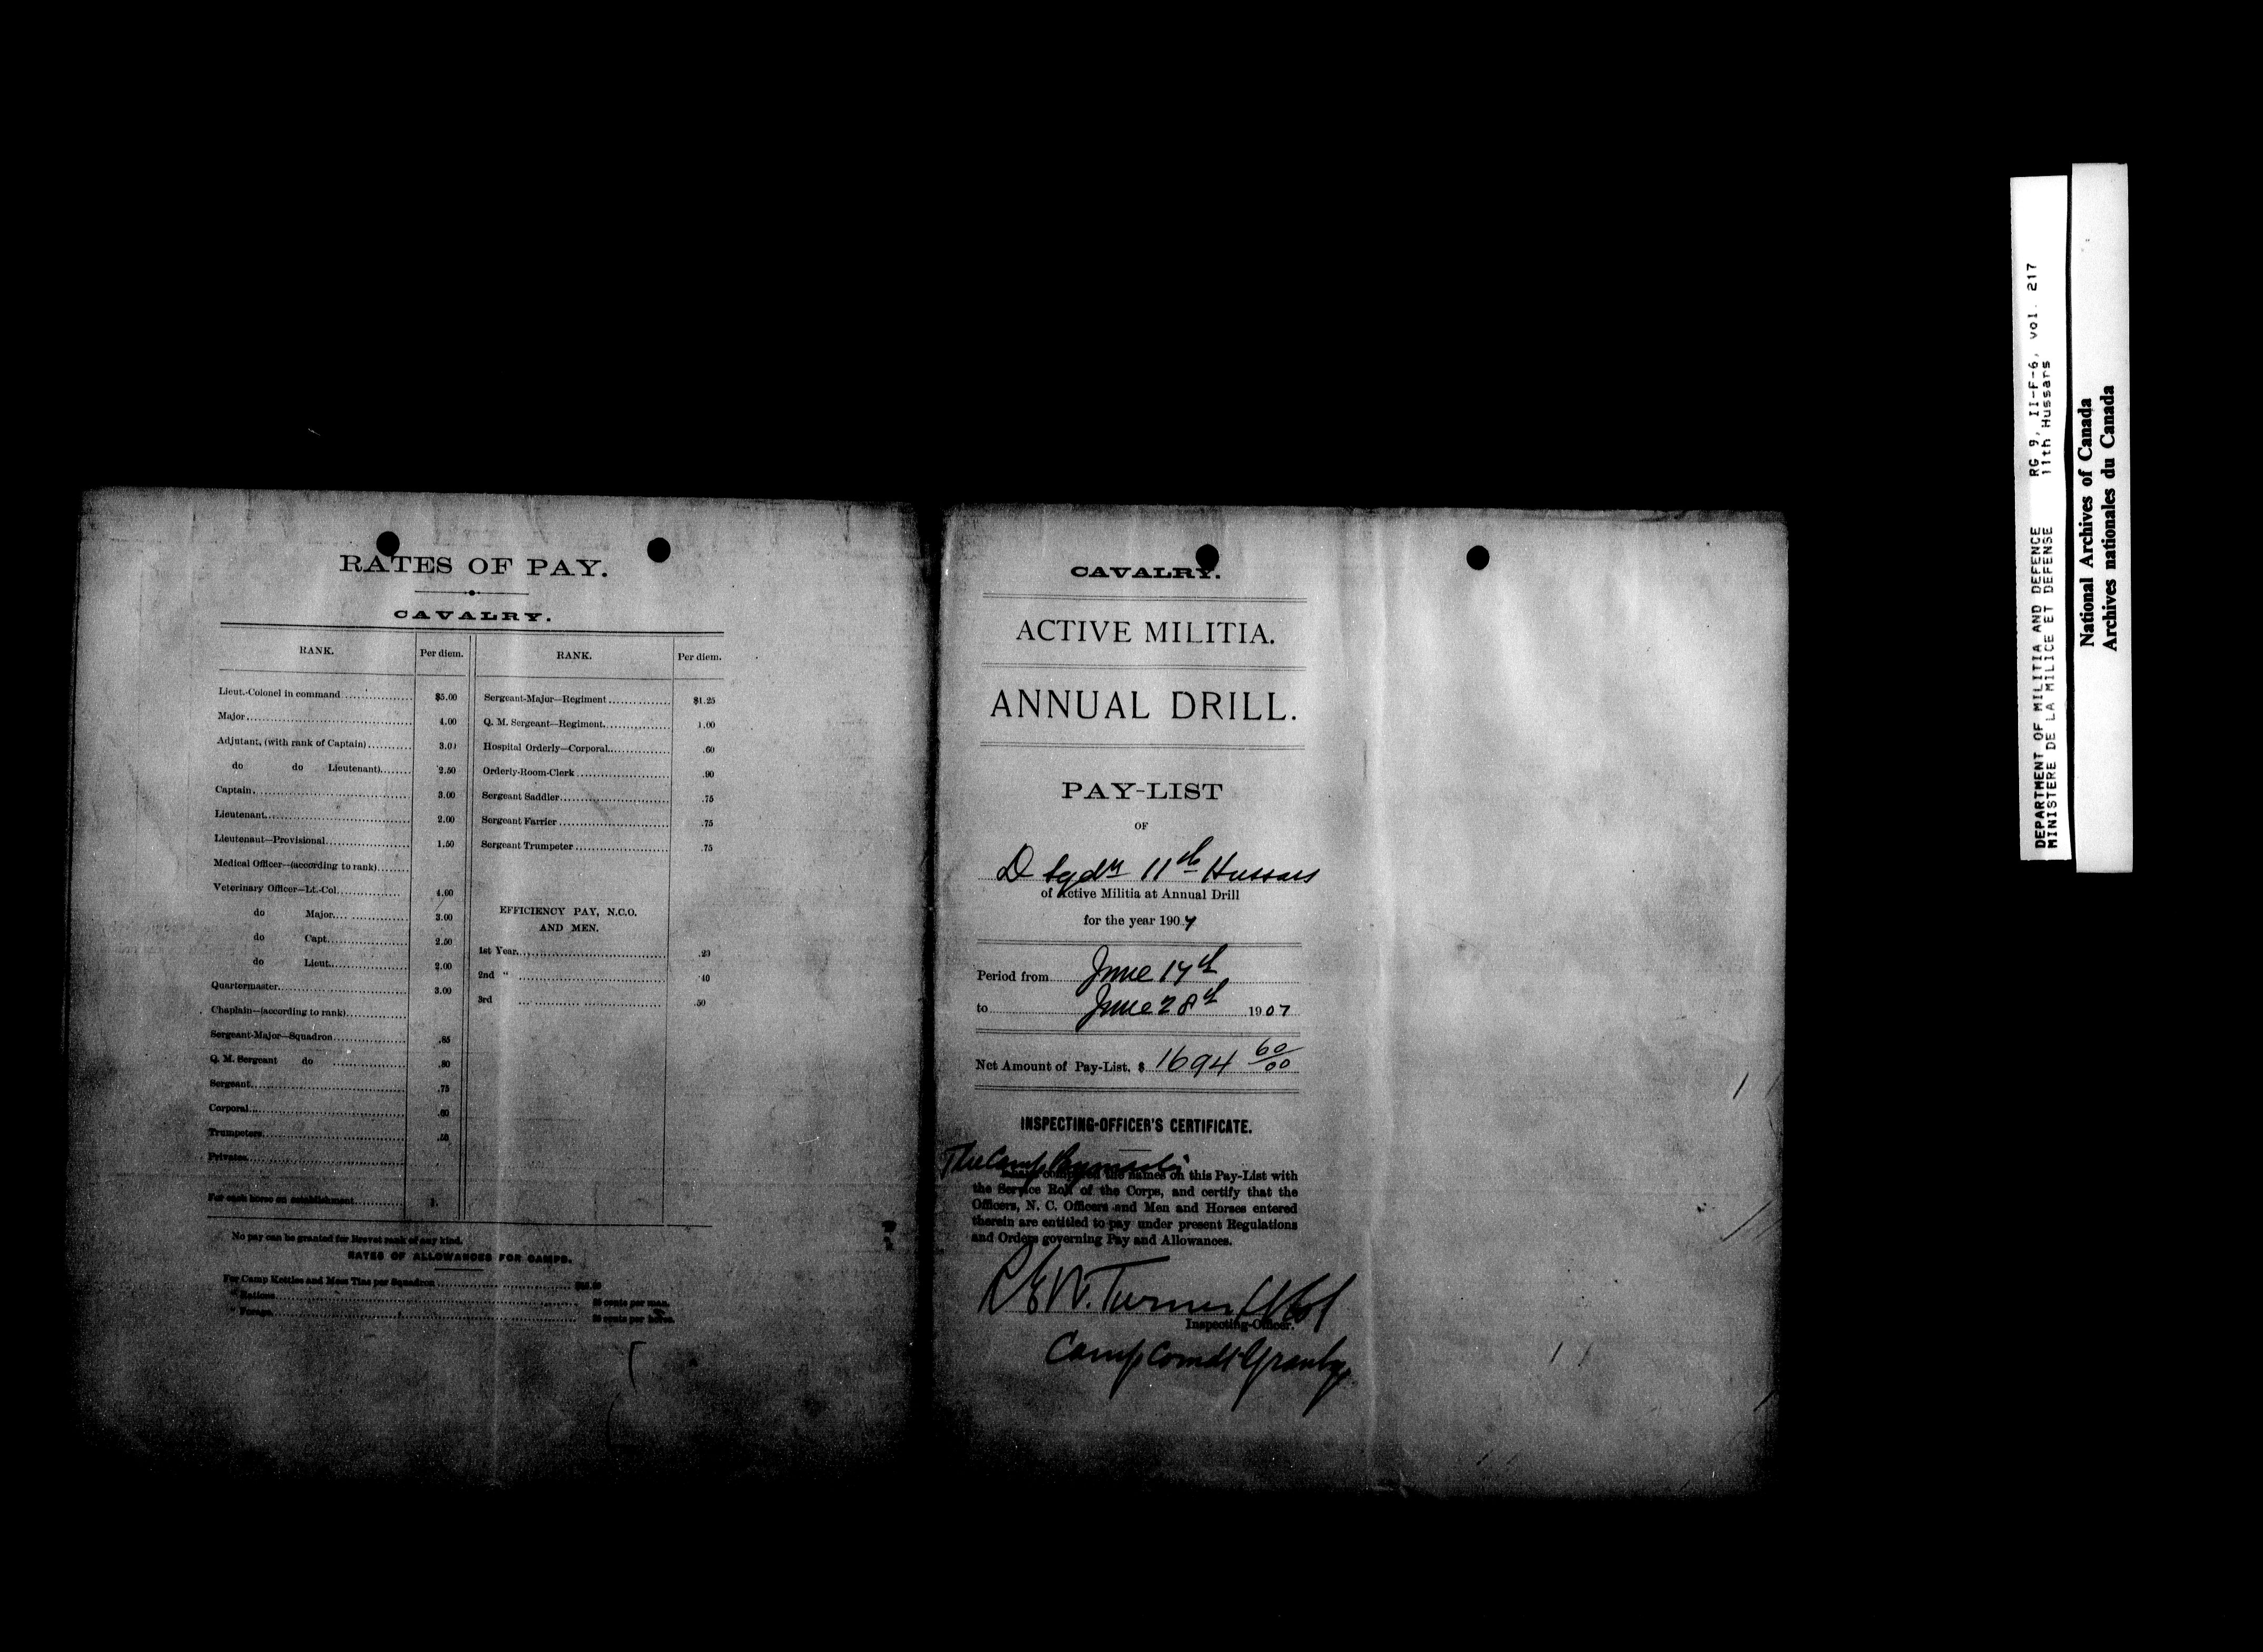 RATES OF PAY.
CAVALRY.
RANK. Per diem. RANK. Per diem.
Lieut.-Colonel in command $5.00 Sergeant-Major—Regiment $1.25
Major 4.00 Q. M. Sergeant—Regiment. 1.00
Adjutant, (with rank of Captain) 3.00 Hospital Orderly—Corporal. .60
do do Lieutenant). 2.50 Orderly-Room-Clerk .90
Captain. 3.00 Sergeant Saddler .75
Lieutenant. 2.00 Sergeant Farrier .75
Lieutenant—Provisional 1.50 Sergeant Trumpeter .75
Medical Officer—(according to rank)
Veterinary Officer—Lt.-Col. 4.00
do Major. 3.00 EFFICIENCY PAY, N.C.O.
AND MEN.
do Capt. 2.50 1st Year.
do Lieut. 2.00 2nd " 40
Quartermaster. 3.00 3rd .50
Chaplain—(according to rank).
Sergeant-Major—Squadron .85
Q. M. Sergeant do .80
Sergeant .75
Corporal .60
Trumpeters
Privates
For each horse on establishment 1.
No pay can be granted for Brevet rank of any kind.
RATES OF ALLOWANCES FOR CAMPS.
For Camp Kettles and Mess Tins per Squadron
" Rations cents per man.
" Forage cents per horse.
CAVALRY.
ACTIVE MILITIA.
ANNUAL DRILL.
PAY-LIST
OF
D Sqdn 11th Hussars
of Active Militia at Annual Drill
for the year 1907
Period from June 17th
to June 28th 1907
Net Amount of Pay-List, $ 1694 60/00
INSPECTING-OFFICER'S CERTIFICATE.
The Camp
compared the names on this Pay-List with
the Service Roll of the Corps, and certify that the
Officers, N. C. Officers and Men and Horses entered
therein are entitled to pay under present Regulations
and Orders governing Pay and Allowances.
R E W. Turner Lt Col
Inspecting-Officer.
Camp Comdt Granby
DEPARTMENT OF MILITIA AND DEFENCE RG 9, II-F-6, vol. 217
MINISTERE DE LA MILICE ET DEFENSE 11th Hussars
National Archives of Canada
Archives nationales du Canada